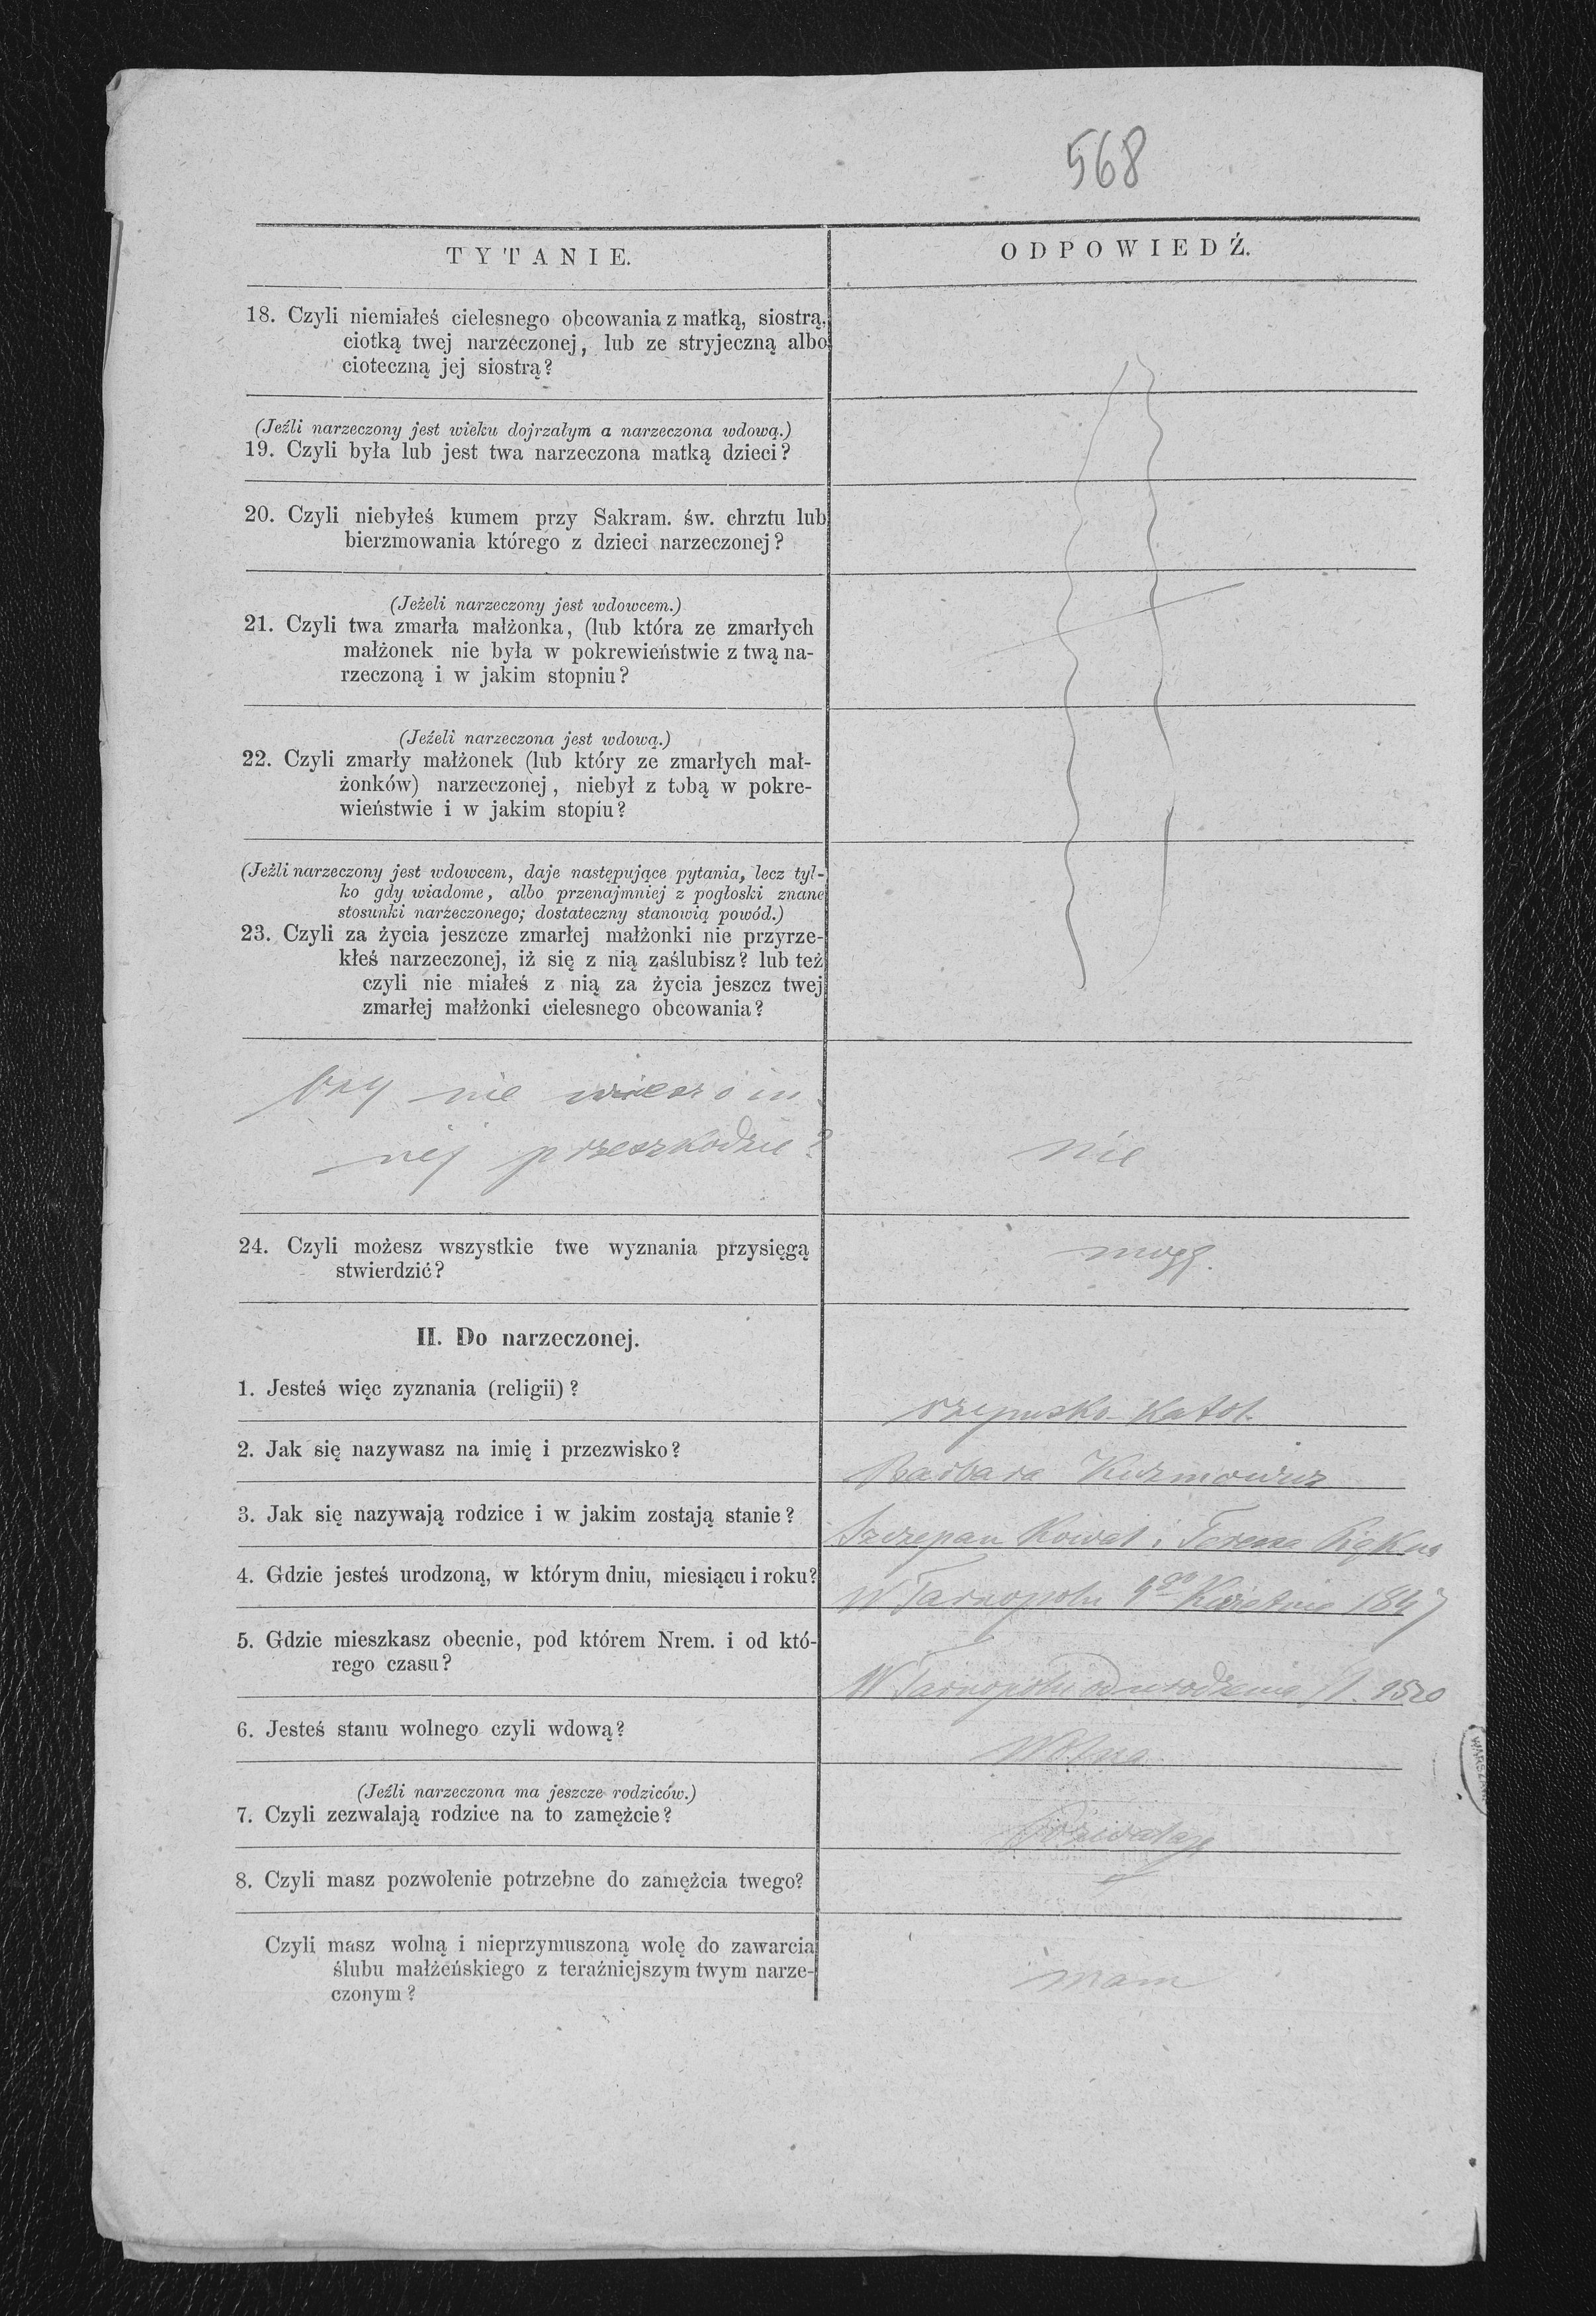 568
TYTANIE.
ODPOWIEDŹ.
18. Czyli niemiałeś cielesnego obcowania z matką, siostrą,
ciotką twej narzeczonej, lub ze stryjeczną albo
cioteczną jej siostrą?
(Jeźli narzeczony jest wieku dojrzałym a narzeczona wdową.)
19. Czyli była lub jest twa narzeczona matką dzieci?
20. Czyli niebyłeś kumem przy Sakram. św. chrztu lub
bierzmowania którego z dzieci narzeczonej?
(Jeżeli narzeczony jest wdowcem.)
21. Czyli twa zmarła małżonka, (lub która ze zmarłych
małżonek nie była w pokrewieństwie z twą na-
rzeczoną i w jakim stopniu?
(Jeżeli narzeczona jest wdową.)
22. Czyli zmarły małżonek (lub który ze zmarłych mał-
żonków) narzeczonej, niebył z tobą w pokre-
wieństwie i w jakim stopiu?
(Jeżli narzeczony jest wdowcem, daje następujące pytania, lecz tyl-
ko gdy wiadome, albo przenajmniej z pogłoski znane
stosunki narzeczonego; dostateczny stanowią powód.)
23. Czyli za życia jeszcze zmarłej małżonki nie przyrze-
kłeś narzeczonej, iż się z nią zaślubisz? lub też
czyli nie miałeś z nią za życia jeszcz twej
zmarłej małżonki cielesnego obcowania?
Czy nie wiesz o in
nej przeszkodzie?
nie
24. Czyli możesz wszystkie twe wyznania przysięgą
stwierdzić?
mogę.
II. Do narzeczonej.
1. Jesteś więc zyznania (religii)?
rzymsko-katol.
2. Jak się nazywasz na imię i przezwisko?
Barbara
3. Jak się nazywają rodzice i w jakim zostają stanie?
Szczepan Kowal i Teressa
4. Gdzie jesteś urodzoną, w którym dniu, miesiącu i roku?
W Tarnopolu Kwietnia 1847
5. Gdzie mieszkasz obecnie, pod którem Nrem. i od któ-
rego czasu?
W Tarnopolu od urodzenia
6. Jesteś stanu wolnego czyli wdową?
Wolna
(Jeźli narzeczona ma jeszcze rodziców.)
7. Czyli zezwalają rodzice na to zamężcie?
8. Czyli masz pozwolenie potrzebne do zamężcia twego?
Czyli masz wolną i nieprzymuszoną wolę do zawarcia
ślubu małżeńskiego z teraźniejszym twym narze-
czonym?
mam